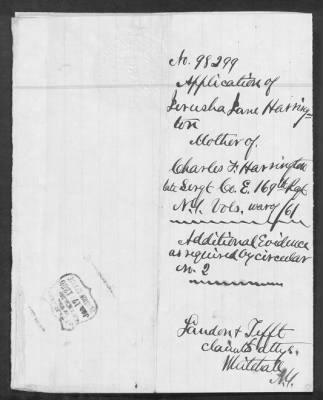 No. 98299
Application of
Jerusha Jane Harring-
ton
Mother of
Charles F. Harrington
late Sergt Co. E. 169th Regt
N.Y. Vols, war of /61
Additional Evidence
as required by circular
No. 2
Landon & Tefft
claimt's attys.
Whitehall
N.Y.